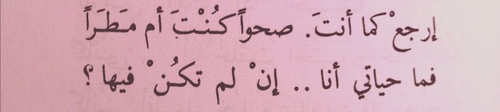 إرجعْ كما أنتَ. صحواً كُنْتَ أم مَطَرَاً
فما حياتي أنا .. إنْ لم تكُنْ فيها ؟